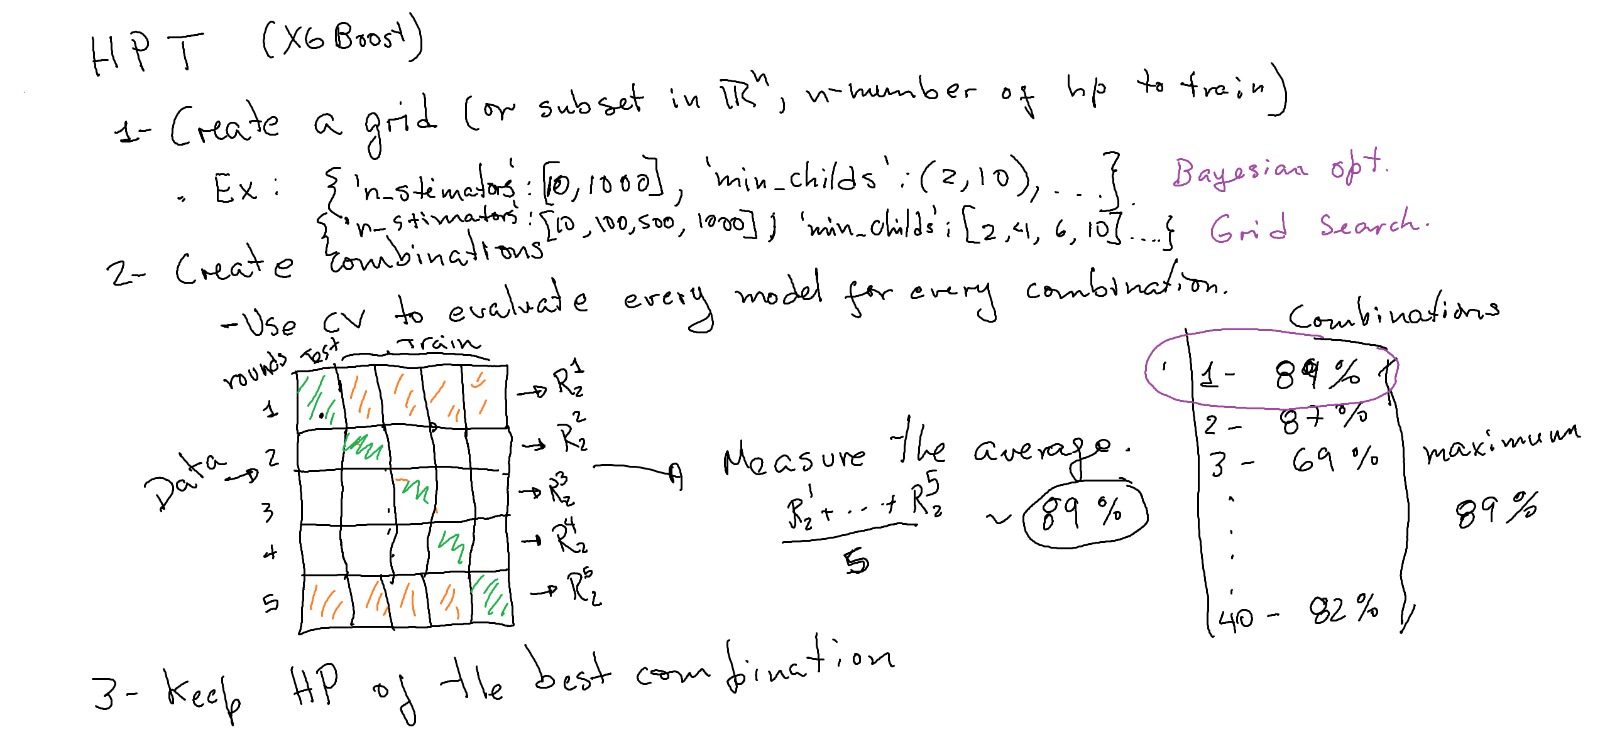 HPT (XGBoost)
1- Create a grid (or subset in ℝⁿ, n-number of hp to train)
. Ex: {'n_stimators': [10, 1000], 'min_childs': (2,10), ...}. Bayesian opt.
{'n_stimators': [10, 100, 500, 1000], 'min_childs': [2, 4, 6, 10]....} Grid Search.
2- Create combinations
- Use CV to evaluate every model for every combination.
Combinations
rounds Test Train
1 → R₂¹
2 → R₂²
3 → R₂³
4 → R₂⁴
5 → R₂⁵
Data →
Measure the average.
R₂¹ + ... + R₂⁵
5
~ 89%
1- 89%
2- 87%
3- 69%
40- 82%
maximum
89%
3- Keep HP of the best combination